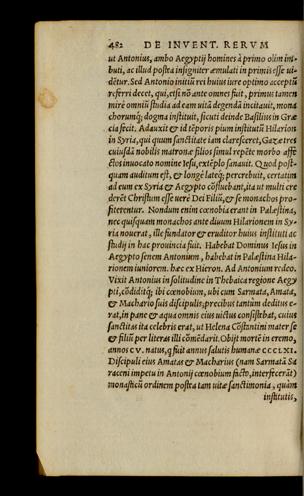 482 DE INVENT. RERVM
ut Antonius, ambo Aegyptij homines à primo olim im-
buti, ac illud postea insigniter æmulati in primis esse ui-
dētur. Sed Antonio initiū rei huius iure optimo acceptū
referri decet, qui, etsi nō ante omnes fuit, primus tamen
mirè omniū studia ad eam uitā degendā incitauit, mona
chorumq; dogma instituit, sicuti deinde Basilius in Græ
cia fecit. Adauxit & id tēporis pium institutū Hilarion
in Syria, qui quum sanctitate iam claresceret, Gazæ tres
cuiusdā nobilis matronæ filios simul repēte morbo affe
ctos inuocato nomine Iesu, extēplo sanauit. Quod post-
quam auditum est, & longè lateq; percrebuit, certatim
ad eum ex Syria & Aegypto cōfluebant, ita ut multi cre
derēt Christum esse uerè Dei Filiū, & se monachos pro-
fiterentur. Nondum enim cœnobia erant in Palæstina,
nec quisquam monachos ante diuum Hilarionem in Sy-
ria nouerat, ille fundator & eruditor huius instituti ac
studij in hac prouincia fuit. Habebat Dominus Iesus in
Aegypto senem Antonium, habebat in Palæstina Hila-
rionem iuniorem. hæc ex Hieron. Ad Antonium redeo.
Vixit Antonius in solitudine in Thebaica regione Aegy
pti, cōdiditq; ibi cœnobium, ubi cum Sarmata, Amata,
& Machario suis discipulis, precibus tantùm deditus e-
rat, in pane & aqua omnis eius uictus consistebat, cuius
sanctitas ita celebris erat, ut Helena Cōstantini mater se
& filiū per literas illi cōmēdarit. Obijt mortē in eremo,
annos CV. natus, q fuit annus salutis humanæ CCCLXI.
Discipuli eius Amatas & Macharius (nam Sarmatā Sa
raceni impetu in Antonij cœnobium facto, interfecerāt)
monasticū ordinem postea tam uitæ sanctimonia, quàm
institutis,